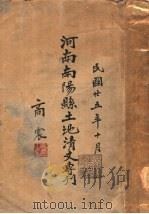 民國廿五年十月
河南南陽縣土地清丈專刊
商震